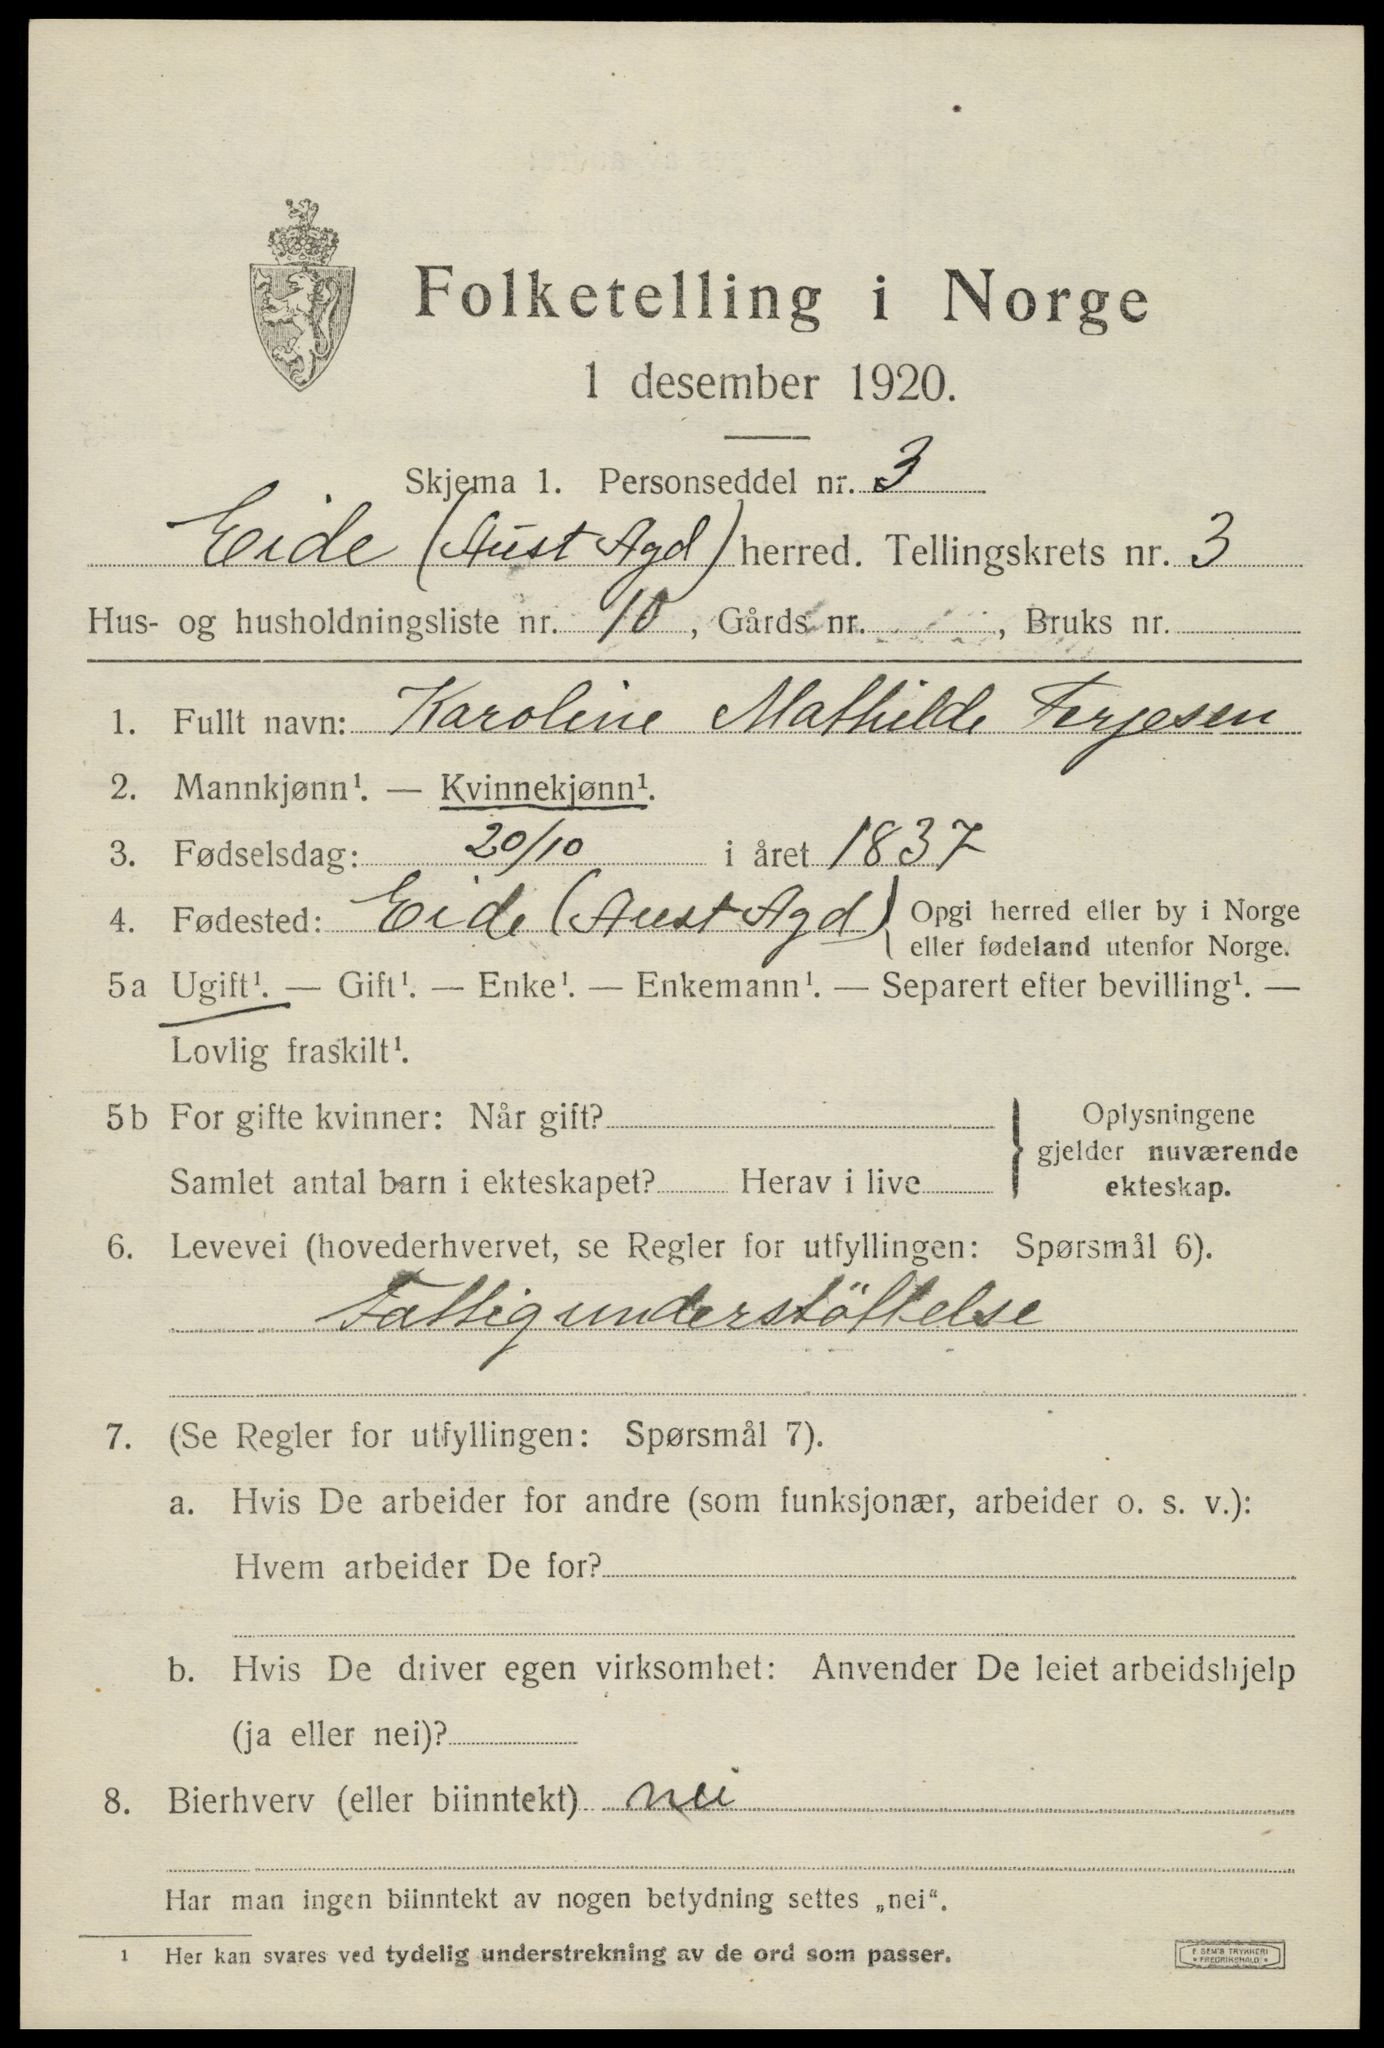 Folketelling i Norge
1 desember 1920.
Skjema 1. Personseddel nr. 3
Eide (Aust Agd) herred. Tellingskrets nr. 3
Hus- og husholdningsliste nr. 10, Gårds nr. , Bruks nr.
1. Fullt navn: Karoline Mathilde Terjesen
2. Mannkjønn¹. — Kvinnekjønn¹.
3. Fødselsdag: 20/10 i året 1837
4. Fødested: Eide (Aust Agd) Opgi herred eller by i Norge
eller fødeland utenfor Norge.
5a Ugift¹. — Gift¹. — Enke¹. — Enkemann¹. — Separert efter bevilling¹. —
Lovlig fraskilt¹.
5b For gifte kvinner: Når gift?
Samlet antal barn i ekteskapet? Herav i live
Oplysningene
gjelder nuværende
ekteskap.
6. Levevei (hovederhvervet, se Regler for utfyllingen: Spørsmål 6).
Fattigunderstöttelse
7. (Se Regler for utfyllingen: Spørsmål 7).
a. Hvis De arbeider for andre (som funksjonær, arbeider o. s. v.):
Hvem arbeider De for?
b. Hvis De driver egen virksomhet: Anvender De leiet arbeidshjelp
(ja eller nei)?
8. Bierhverv (eller biinntekt) nei
Har man ingen biinntekt av nogen betydning settes „nei“.
¹ Her kan svares ved tydelig understrekning av de ord som passer.
E SEM'S TRYKKERI
FREDRIKSHALD